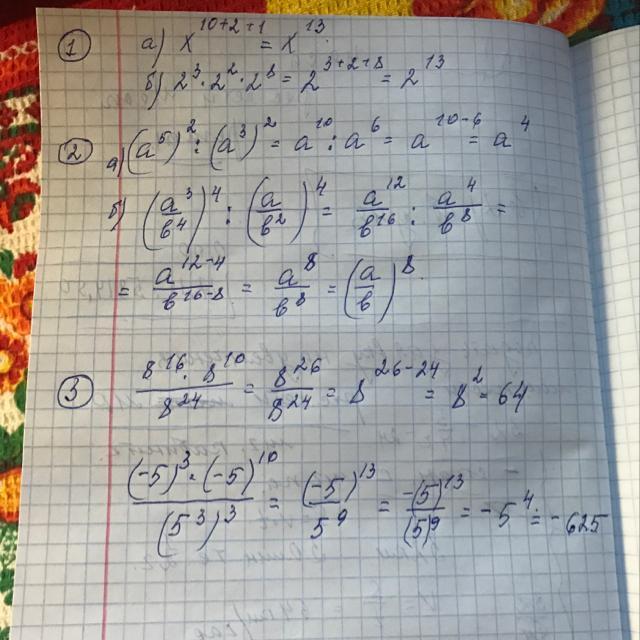 ① а) x^{10+2+1} = x^{13}.
б) 2^3 · 2^2 · 2^8 = 2^{3+2+8} = 2^{13}
② а) (a^5)^2 : (a^3)^2 = a^{10} : a^6 = a^{10-6} = a^4
б) (a^3/b^4)^4 : (a/b^2)^4 = a^{12}/b^{16} : a^4/b^8 =
= a^{12-4}/b^{16-8} = a^8/b^8 = (a/b)^8.
③ 8^{16} · 8^{10}/8^{24} = 8^{26}/8^{24} = 8^{26-24} = 8^2 = 64
(-5)^3 · (-5)^{10}/(5^3)^3 = (-5)^{13}/5^9 = -(5)^{13}/(5)^9 = -5^4 = -625